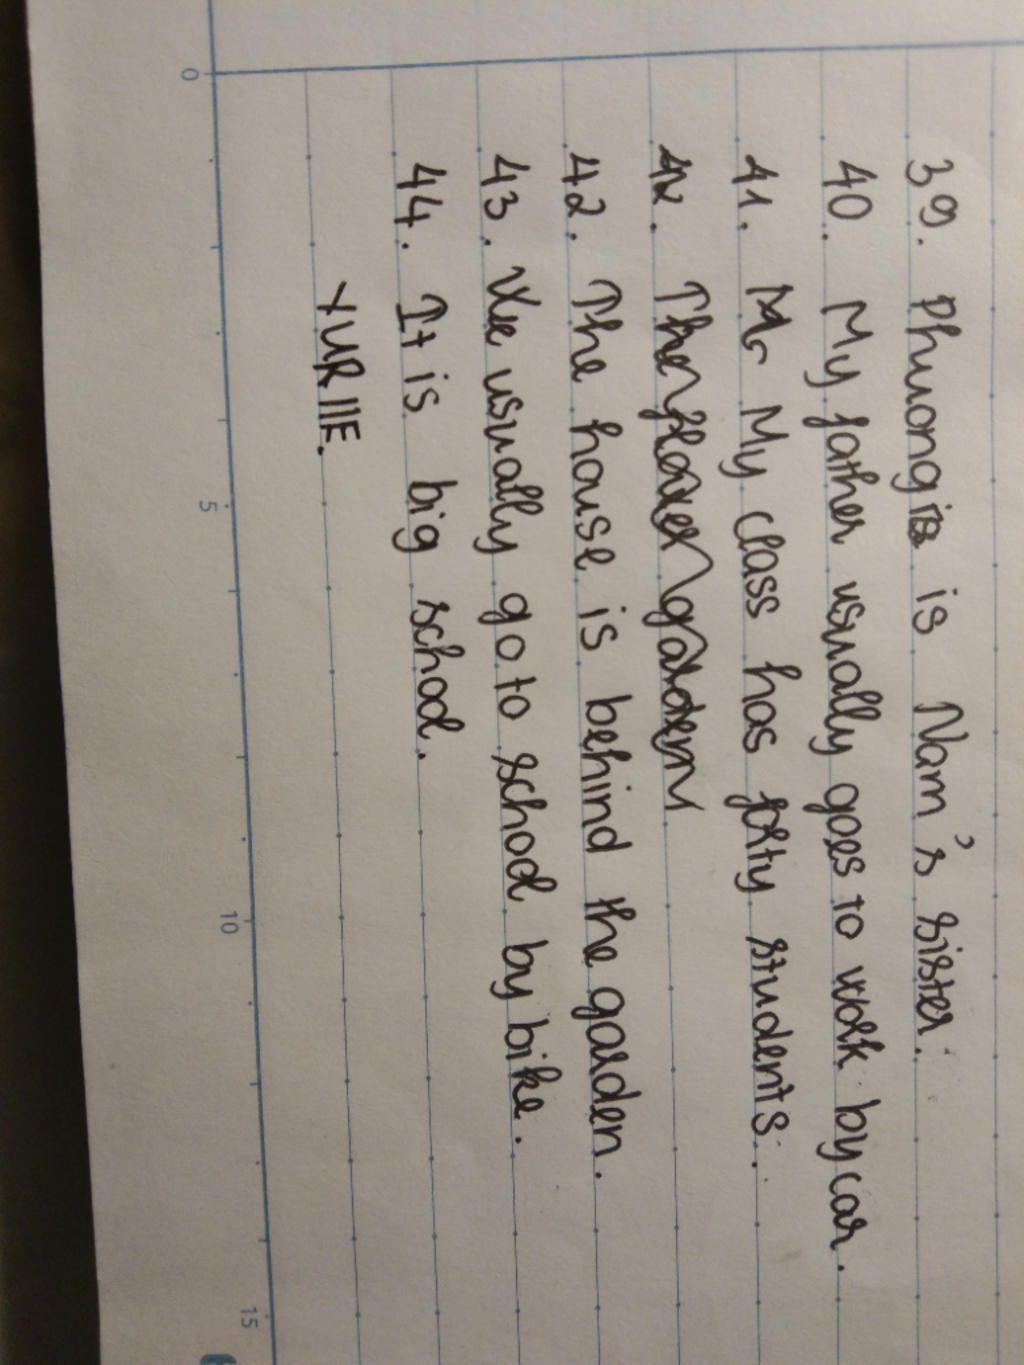 39. Phuong is Nam's sister.
40. My father usually goes to work by car.
41. My class has forty students.
42. The flower garden
42. The house is behind the garden.
43. We usually go to school by bike.
44. It is big school.
YURIIE.
0
5
10
15